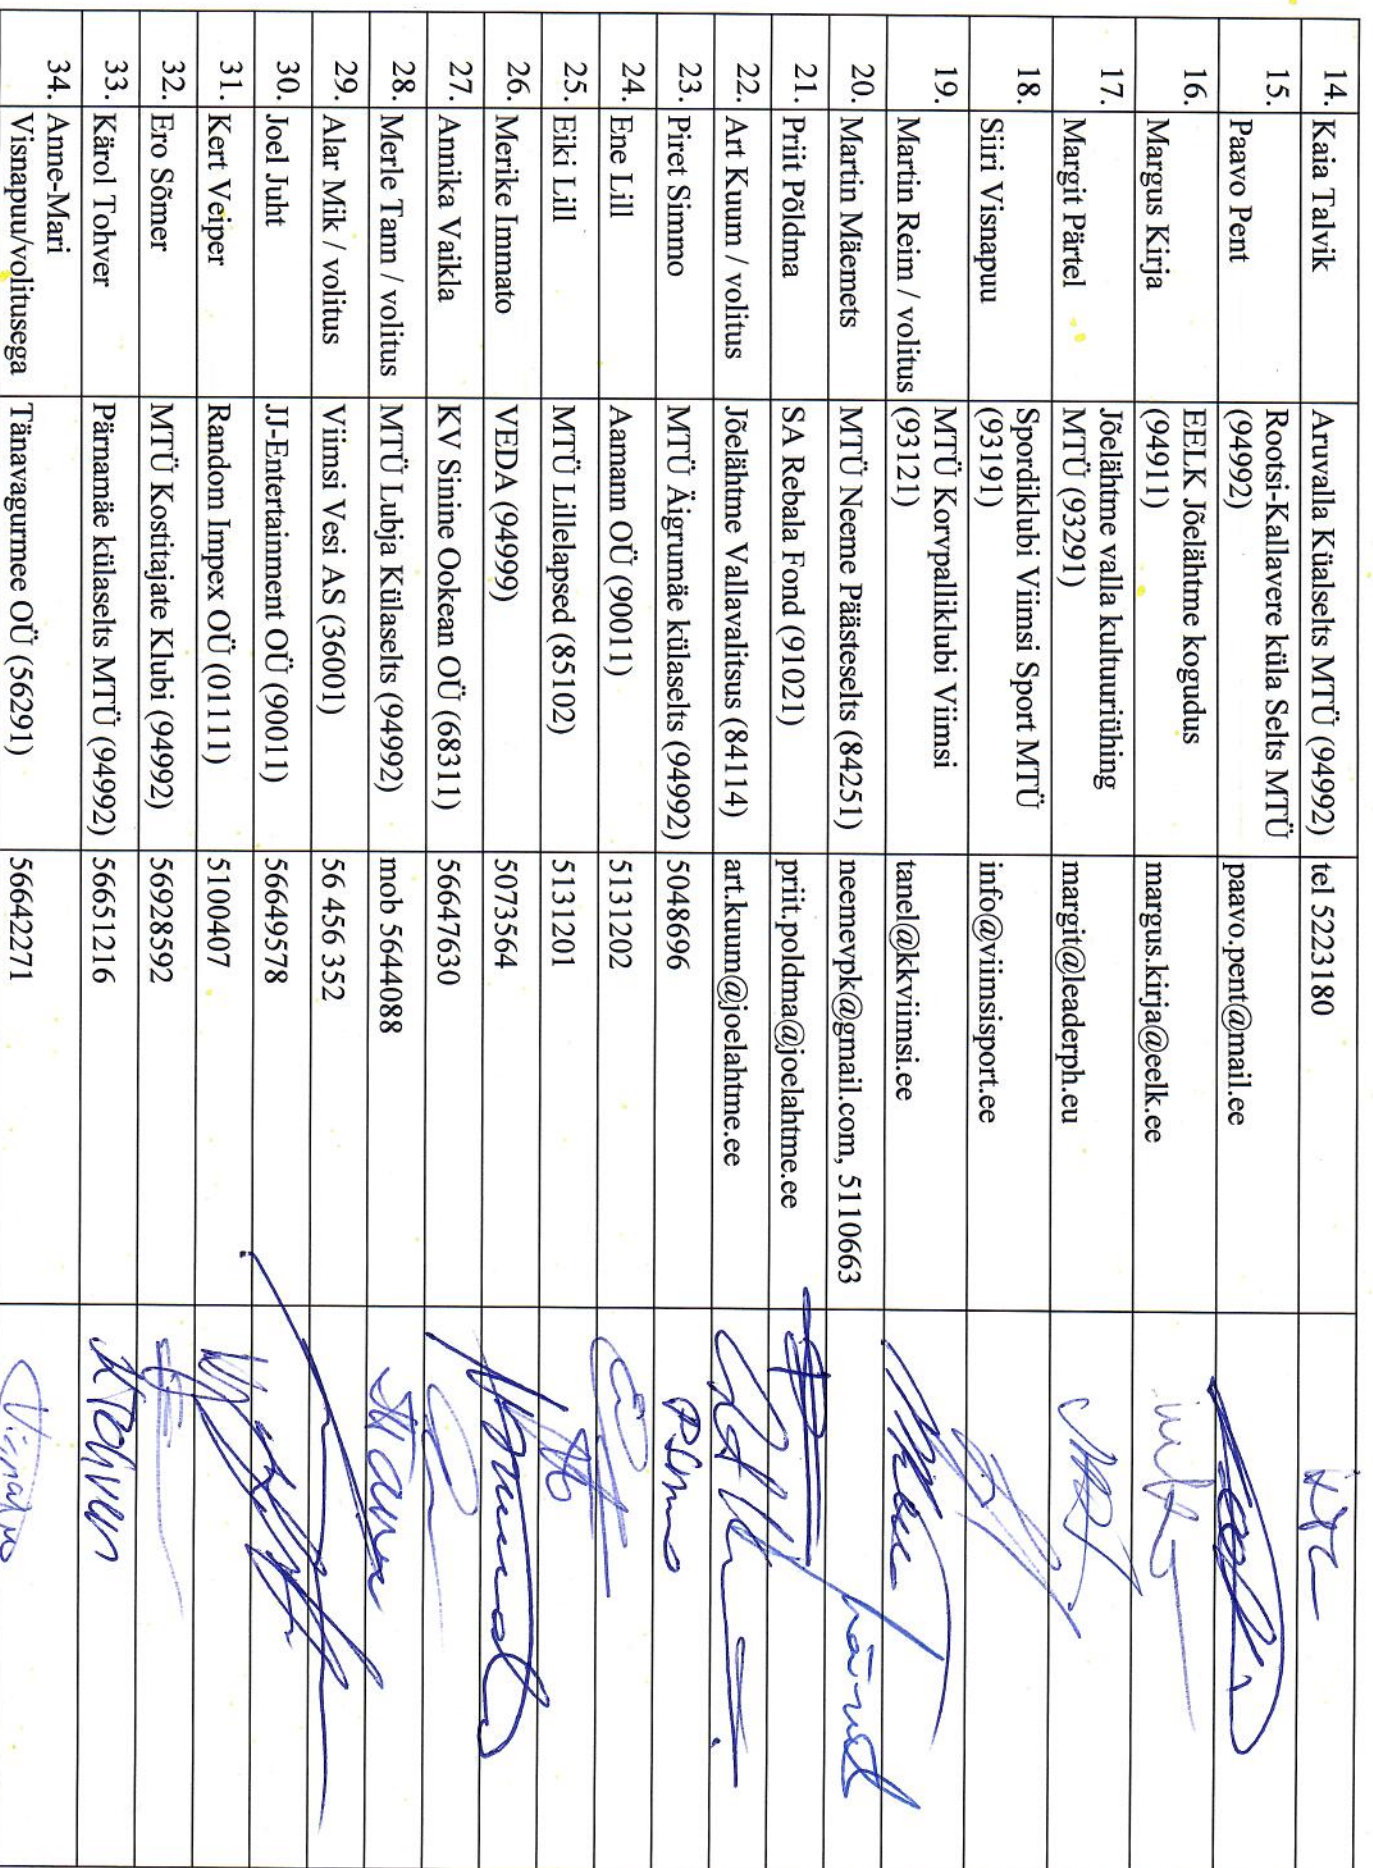 14. Kaia Talvik Aruvalla Küalselts MTÜ (94992) tel 5223180
15. Paavo Pent Rootsi-Kallavere küla Selts MTÜ
(94992) paavo.pent@mail.ee
16. Margus Kirja EELK Jõelähtme kogudus
(94911) margus.kirja@eelk.ee
17. Margit Pärtel Jõelähtme valla kultuuriühing
MTÜ (93291) margit@leaderph.eu
18. Siiri Visnapuu Spordiklubi Viimsi Sport MTÜ
(93191) info@viimsisport.ee
19. Martin Reim / volitus MTÜ Korvpalliklubi Viimsi
(93121) tanel@kkviimsi.ee
20. Martin Mäemets MTÜ Neeme Päästeselts (84251) neemevpk@gmail.com, 5110663
21. Priit Põldma SA Rebala Fond (91021) priit.poldma@joelahtme.ee
22. Art Kuum / volitus Jõelähtme Vallavalitsus (84114) art.kuum@joelahtme.ee
23. Piret Simmo MTÜ Äigrumäe külaselts (94992) 5048696
24. Ene Lill Aamann OÜ (90011) 5131202
25. Eiki Lill MTÜ Lillelapsed (85102) 5131201
26. Merike Immato VEDA (94999) 5073564
27. Annika Vaikla KV Sinine Ookean OÜ (68311) 56647630
28. Merle Tann / volitus MTÜ Lubja Külaselts (94992) mob 5644088
29. Alar Mik / volitus Viimsi Vesi AS (36001) 56 456 352
30. Joel Juht JJ-Entertainment OÜ (90011) 56649578
31. Kert Veiper Random Impex OÜ (01111) 5100407
32. Ero Sõmer MTÜ Kostitajate Klubi (94992) 56928592
33. Kärol Tohver Pärnamäe külaselts MTÜ (94992) 56651216
34. Anne-Mari
Visnapuu/volitusega Tänavagurmee OÜ (56291) 56642271